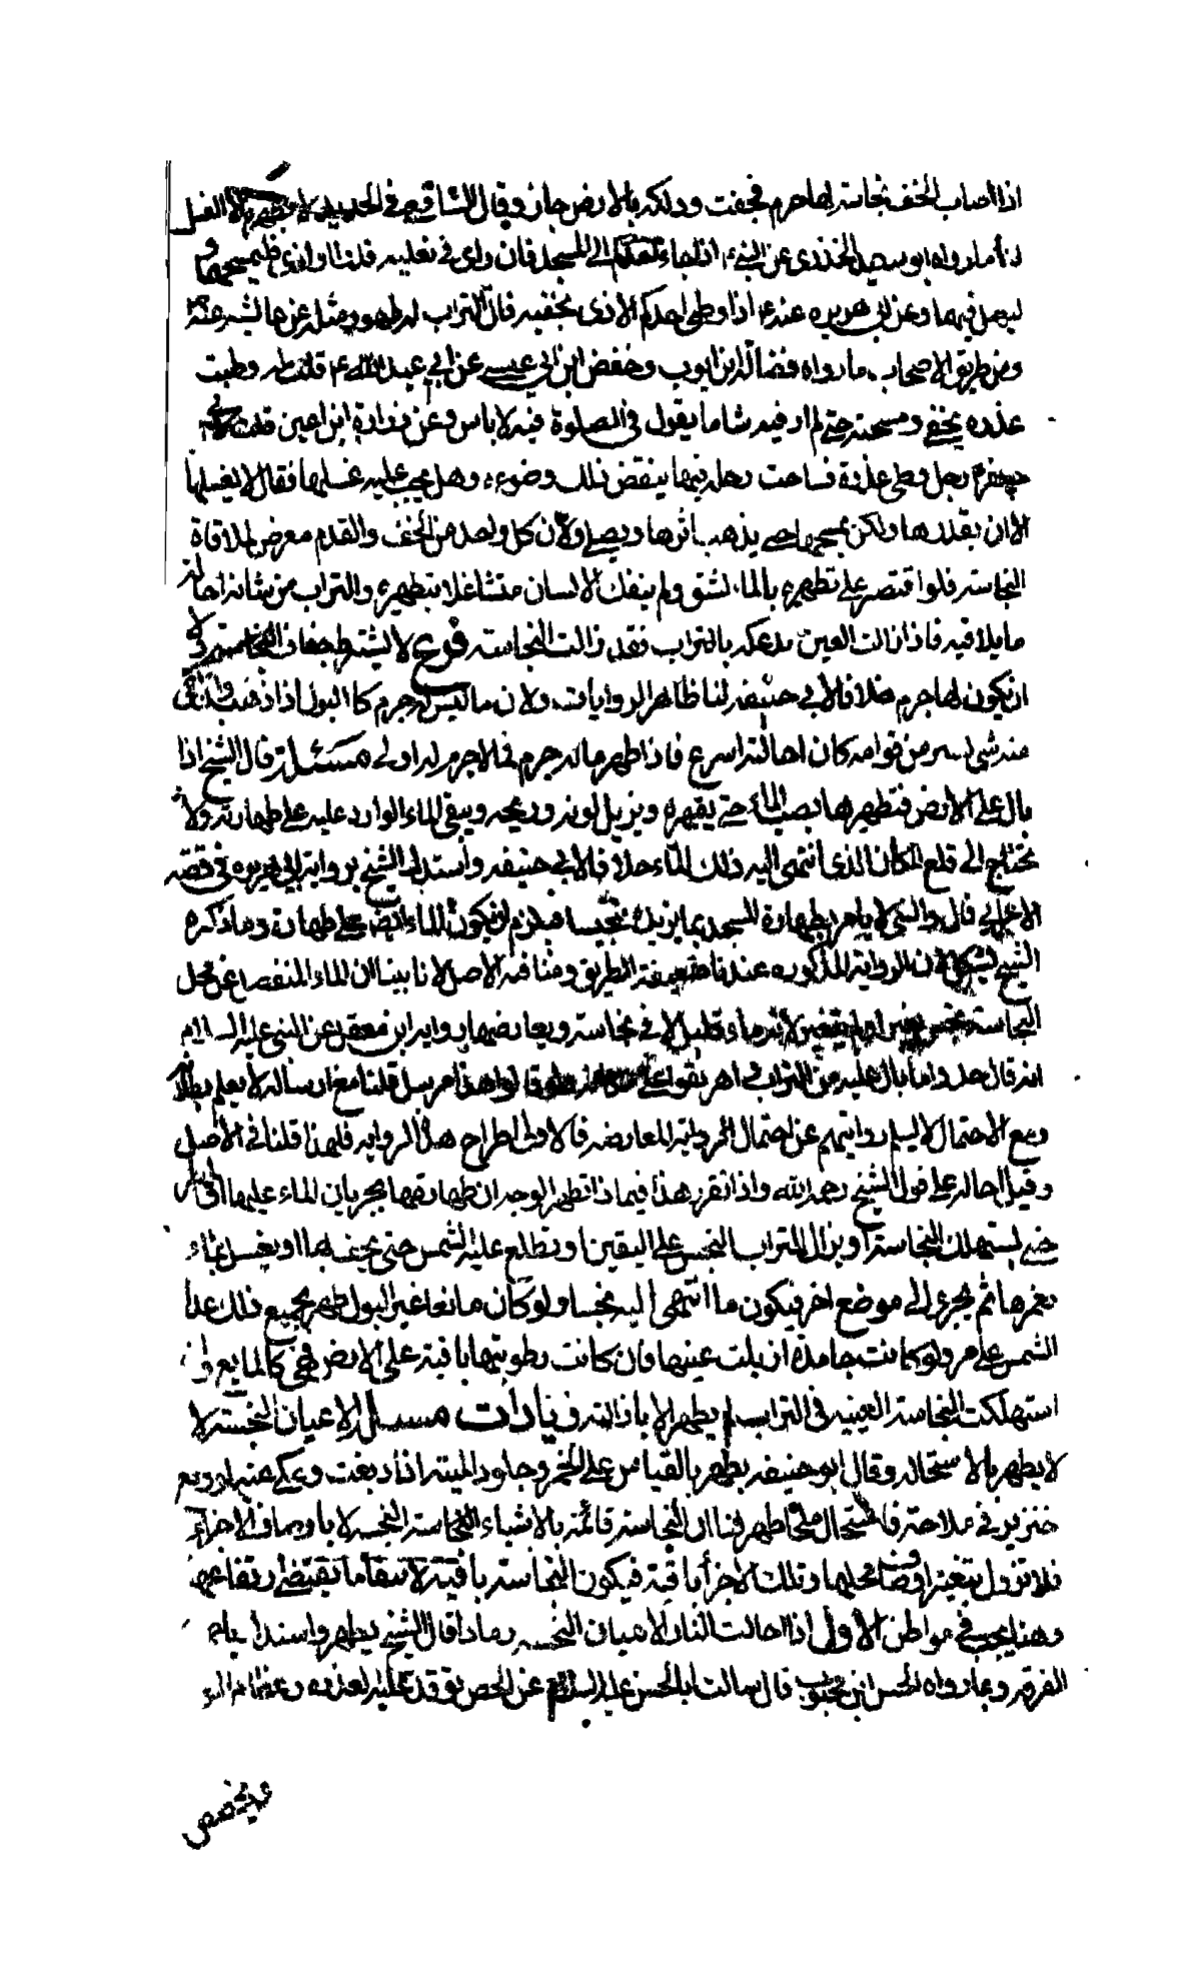 اذا اصاب الخف نجاسة لها جرم فجفت ودلكه بالارض جاز وقال الشافعي في الجديد لا يطهره الا الغسل
لنا ما رواه ابو سعيد الخدري عن النبي ۴ اذا جاء احدكم الى المسجد فان راى في نعليه قذرا او اذى فليمسحهما و
ليصل فيهما وعن ابي هريره عنه ۴ اذا وطى احدكم الاذى بخفيه فان التراب له طهور ومثله عن عائشه عنه ۴
ومن طريق الاصحاب ما رواه فضالة ابن ايوب وحفص ابن ابي عيسى عن ابي عبد الله ۴ قلت له وطيت
عذره بخفي ومسحته حتى لم ار فيه شيا ما يقول في الصلوة فيه لا باس وعن زرارة ابن اعين قلت لابي
جعفر ۴ رجل وطى عذرة فساخت رجله فيها ينقض ذلك وضوءه وهل يجب عليه غسلها فقال لا يغسلها
الا ان يقذرها ولكن يمسحها حتى يذهب اثرها ويصلي ولان كل واحد من الخف والقدم معرض لملاقاة
النجاسة فلو اقتصر على تطهيره بالماء لشق ولم ينفك الانسان متشاغلا بتطهيره والتراب من شانه احالة
ما يلاقيه فاذا زالت العين بدعكه بالتراب فقد زالت النجاسة فروع لا يشترط جفاف النجاسة ولا
ان يكون لها جرم خلافا لابي حنيفه لنا ظاهر الروايات ولان ما ليس له جرم كالبول اذا ذهب وان بقي
منه شي يسير من قوامه كان احالته اسرع فاذا طهر ماله جرم فما لا جرم له اولى مسئلة قال الشيخ اذا
بال على الارض فتطهيرها بصب الماء حتى يقهره ويزيل لونه وريحه ويبقى الماء الوارد عليه على طهارته ولا
يحتاج الى قلع المكان الذي انتهى اليه ذلك الماء خلافا لابي حنيفه واستدل الشيخ برواية ابي هريره في قصة
الاعرابي قال والنبي لا يامر بطهارة المسجد بما يزيده تنجيسا فيلزم ان يكون الماء ايضا على طهارته وما ذكره
الشيخ يشكل لان الرواية المذكوره عندنا ضعيفة الطريق ومنافية الاصل لانا بينا ان الماء المنفصل عن محل
النجاسة نجس تغير او لم يتغير لانه ماء قليل لاقى نجاسة ويعارضها رواية ابن معقل عن النبي عليه السلام
انه قال خذوا ما بال عليه من التراب واهريقوا على مكانه ماء قالوا هذا مرسل قلنا مع ارساله لا يعلم بطلانه
ومع الاحتمال لا يسلم روايتهم عن احتمال الرواية المعارضه فالاولى اطراح هذه الروايه فلهذا قلنا في الاصل
وقيل احالة على قول الشيخ رحمه الله واذا تقرر هذا فبماذا تطهر الوجه ان طهارتها بجريان الماء عليها
حتى يستهلك النجاسة او يزال التراب النجس على اليقين او تطلع عليه الشمس حتى يجففها او يغسل بماء
يغمرها ثم يجري الى موضع اخر فيكون ما انتهى اليه نجسا ولو كان مائعا غير البول طهر بجميع ذلك عدا
الشمس على مر ولو كانت جامدة ازيلت عينها فان كانت رطوبتها باقية على الارض فهي كالمايع وان
استهلكت النجاسة العينيه في التراب لم يطهر الا بازالته زيادات مسئلة الاعيان النجسة لا
لا يطهر بالاستحاله وقال ابو حنيفه يطهر بالقياس على الخمر وجلود الميته اذا دبغت وحكي عنه لو وقع
خنزير في ملاحة فاستحال ملحا طهر لنا ان النجاسة قائمة بالاشياء النجسه لا باوصاف الاجزاء
فلا تزول بتغير اوصاف محلها وتلك الاجزاء باقية فيكون النجاسة باقية لانتفاء ما يقتضي ارتفاعها
وهنا يجب في مواطن الاول اذا احالت النار الاعيان النجسه رمادا قال الشيخ يطهر واستدل باجماع
الفرقه وبما رواه الحسن ابن محبوب قال سالت ابا الحسن عليه السلام عن الجص يوقد عليه العذره وعظام الموتى
ويجصص